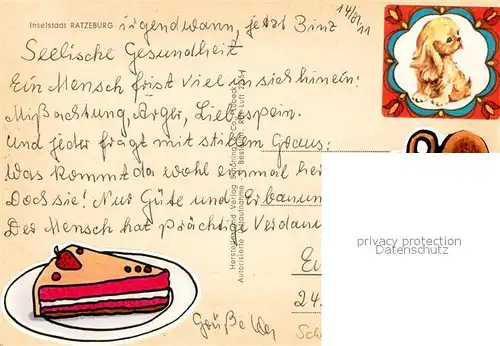 Inselstadt RATZEBURG
irgendwann, jetzt Binz
Seelische Gesundheit
Ein Mensch frist viel in sich hinein:
Mißachtung, Ärger, Liebespein.
Und jeder fragt mit stillem Graus:
Was kommt da wohl einmal
Doch sie! Nur Güte und Erbauun
Der Mensch hat prächtige Verdauu
24.
Grüße
privacy protection
Datenschutz